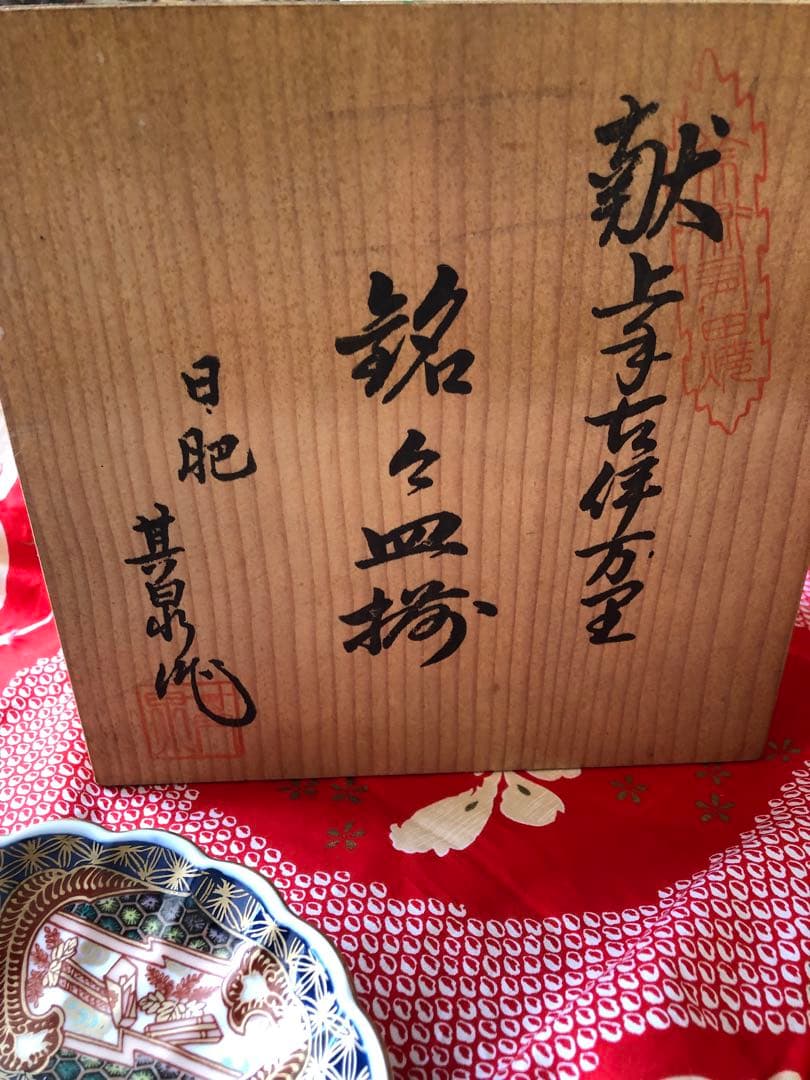 有田焼
献上手古伊万里
銘々皿揃
日肥
其泉作